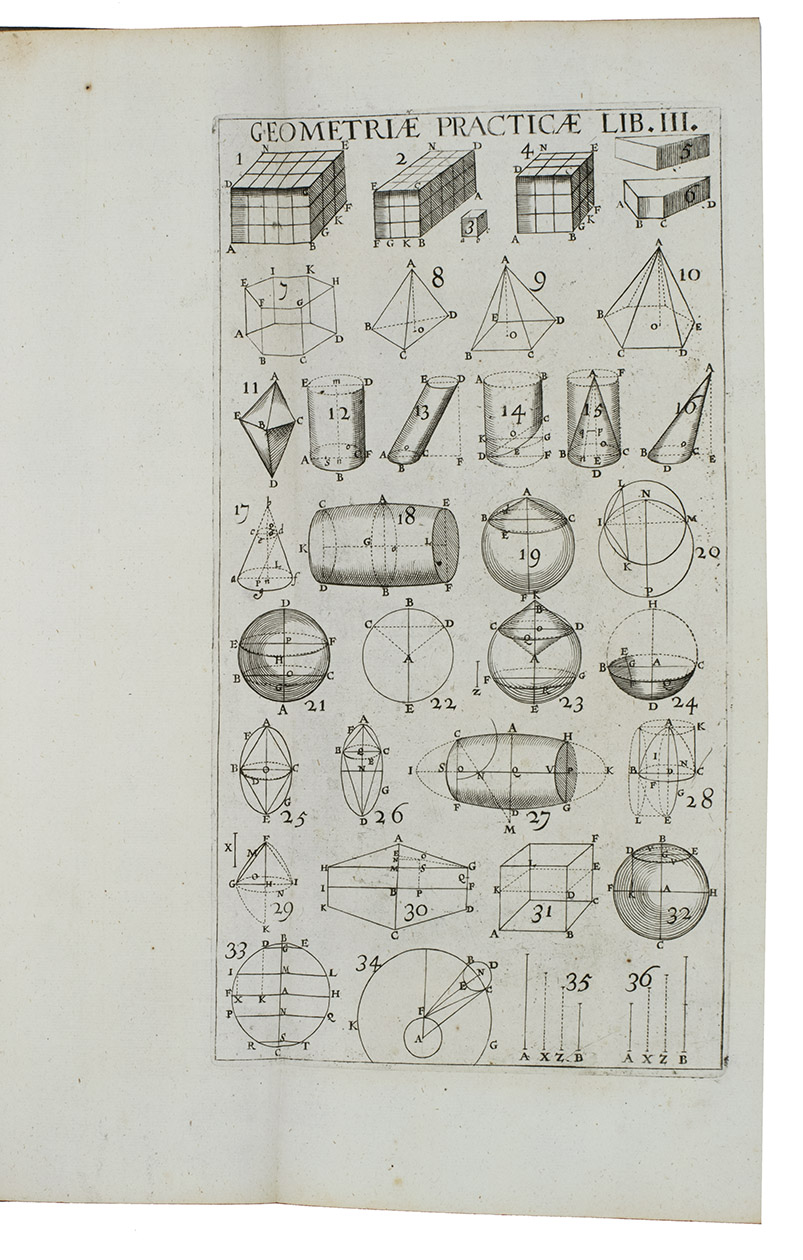 GEOMETRIÆ PRACTICÆ LIB. III.
1 N E D C F K G A B
2 N D E C A F G K B
3
4 N E D C F K G A B
5
6 A B C D
7 E I K H F G A D B C
8 A B D O C
9 A E D O B C
10 A B O E C D
11 A E B C D
12 E m D A S n O C F B
13 E D A O C F B
14 A B C K O G D E F
15 A F q r o B n E C D
16 A O B C D E
17 b c d a L f P n g
18 C A E K G o L D B F
19 A B C F
20 L N I M K P
21 D E P F H O B C G A
22 B C D A E
23 K B C O D Q A F G R E Z
24 H E B G A C F Q D
25 A F B O C D G E
26 A F B C E N G D
27 C A H I S O N Q V P K F D G M
28 A K I N B D C F G L E
29 X F M O G H I N K
30 A E O N H M S G Q I B P F K C D
31 F L E K D C A B
32 B D V G E V F K A H C
33 B D G E I M L F X K A H P N Q R S T C
34 B D N E C F K A G
35 A X Z B
36 A X Z B